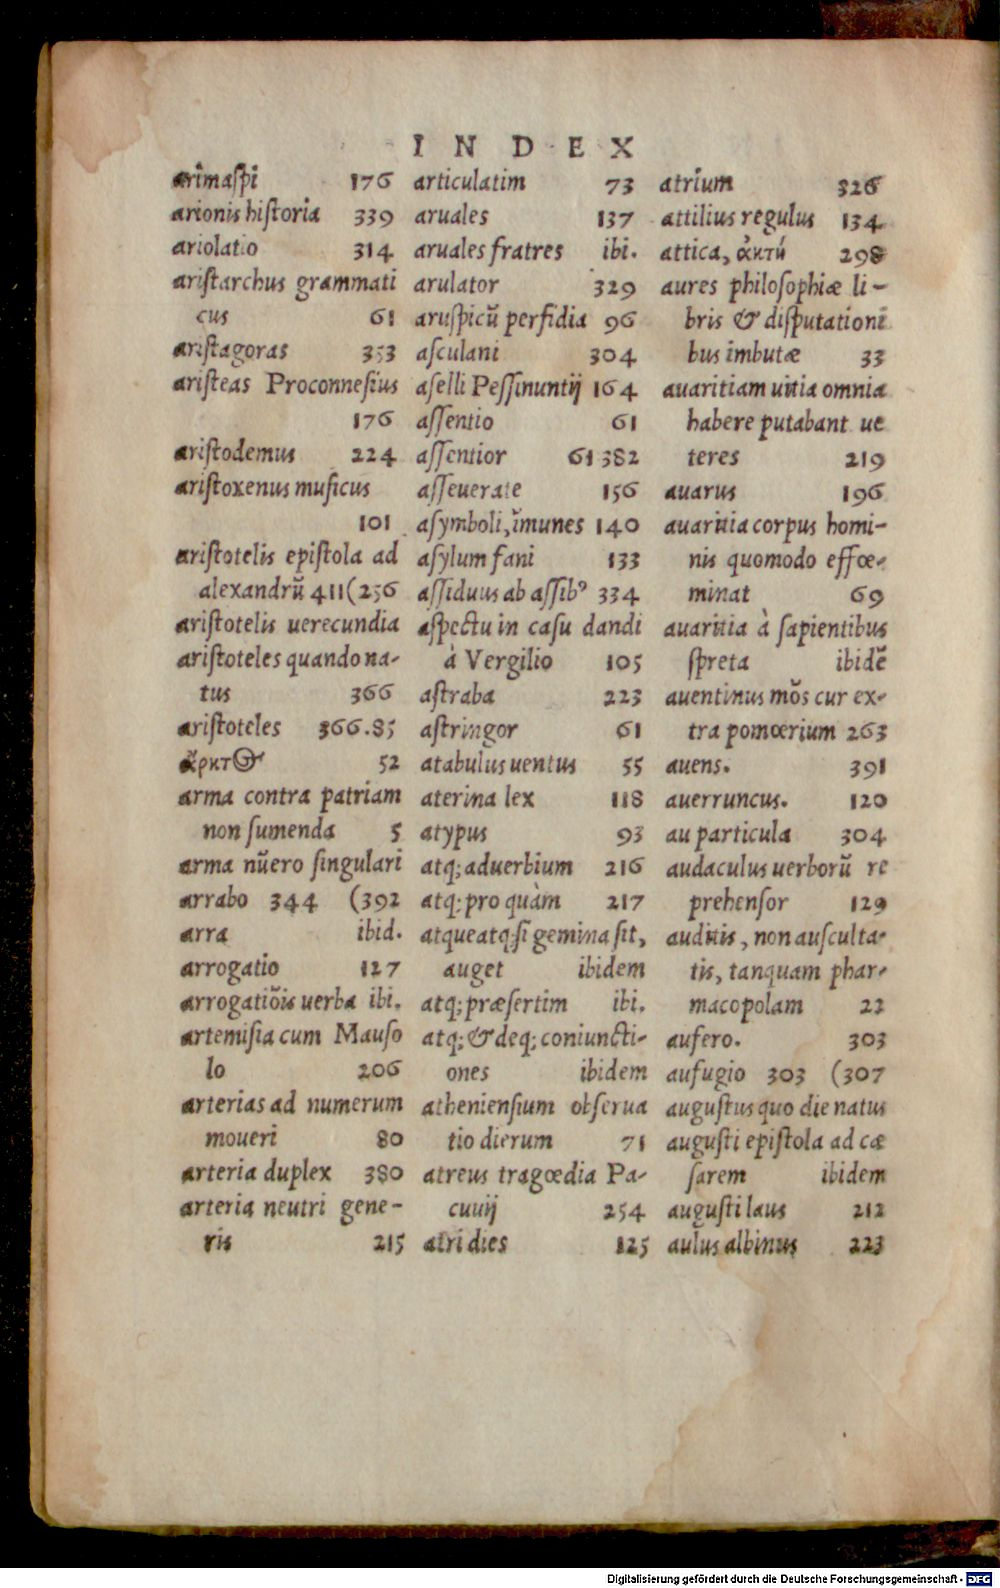 INDEX
arimaspi 176
arionis historia 339
ariolatio 314
aristarchus grammati
cus 61
aristagoras 353
aristeas Proconnesius
176
aristodemus 224
aristoxenus musicus
101
aristotelis epistola ad
alexandrũ 411 (256
aristotelis uerecundia
aristoteles quando na-
tus 366
aristoteles 366.85
ἄρκτος 52
arma contra patriam
non sumenda 5
arma nũero singulari
arrabo 344 (392
arra ibid.
arrogatio 127
arrogatiõis uerba ibi.
artemisia cum Mauso
lo 206
arterias ad numerum
moueri 80
arteria duplex 380
arteria neutri gene-
ris 215
articulatim 73
aruales 137
aruales fratres ibi.
arulator 329
aruspicũ perfidia 96
asculani 304
aselli Pessinuntij 164
assentio 61
assentior 61 382
asseuerate 156
asymboli, ĩmunes 140
asylum fani 133
assiduus ab assibꝰ 334
aspectu in casu dandi
à Vergilio 105
astraba 223
astringor 61
atabulus uentus 55
aterina lex 118
atypus 93
atq; aduerbium 216
atq; pro quàm 217
atque atq; si gemina sit,
auget ibidem
atq; præsertim ibi.
atq; & deq; coniuncti-
ones ibidem
atheniensium obserua
tio dierum 71
atreus tragœdia Pa-
cuuij 254
atri dies 125
atrium 326
attilius regulus 134
attica, ἀκτή 298
aures philosophiæ li-
bris & disputationi
bus imbutæ 33
auaritiam uitia omnia
habere putabant ue
teres 219
auarus 196
auaritia corpus homi-
nis quomodo effœ-
minat 69
auaritia à sapientibus
spreta ibidẽ
auentinus mõs cur ex-
tra pomœrium 263
auens. 391
auerruncus. 120
au particula 304
audaculus uerborũ re
prehensor 129
auditis, non ausculta-
tis, tanquam phar-
macopolam 22
aufero. 303
aufugio 303 (307
augustus quo die natus
augusti epistola ad cæ
sarem ibidem
augusti laus 212
aulus albinus 223
Digitalisierung gefördert durch die Deutsche Forschungsgemeinschaft - DFG